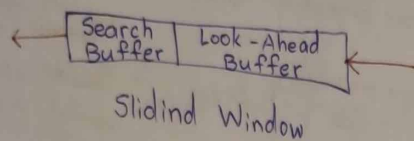 Search
Buffer
Look-Ahead
Buffer
Slidind Window